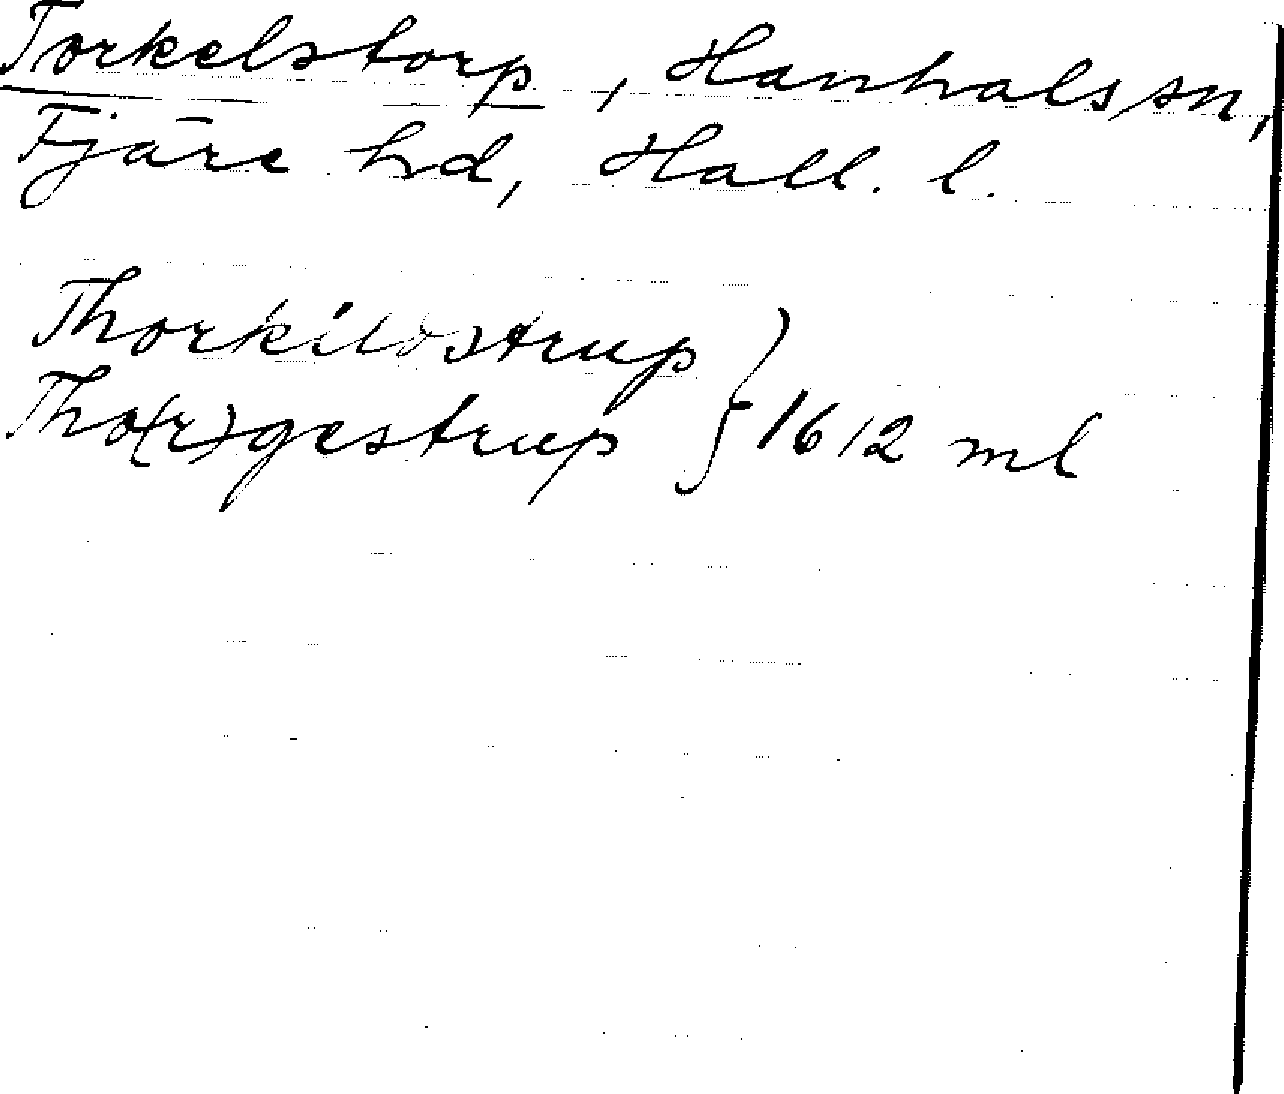 Torkelstorp, Hanhals sn,
Fjäre hd, Hall. l.
Thorkildstrup
Tho(r)gestrup } 1612 ml